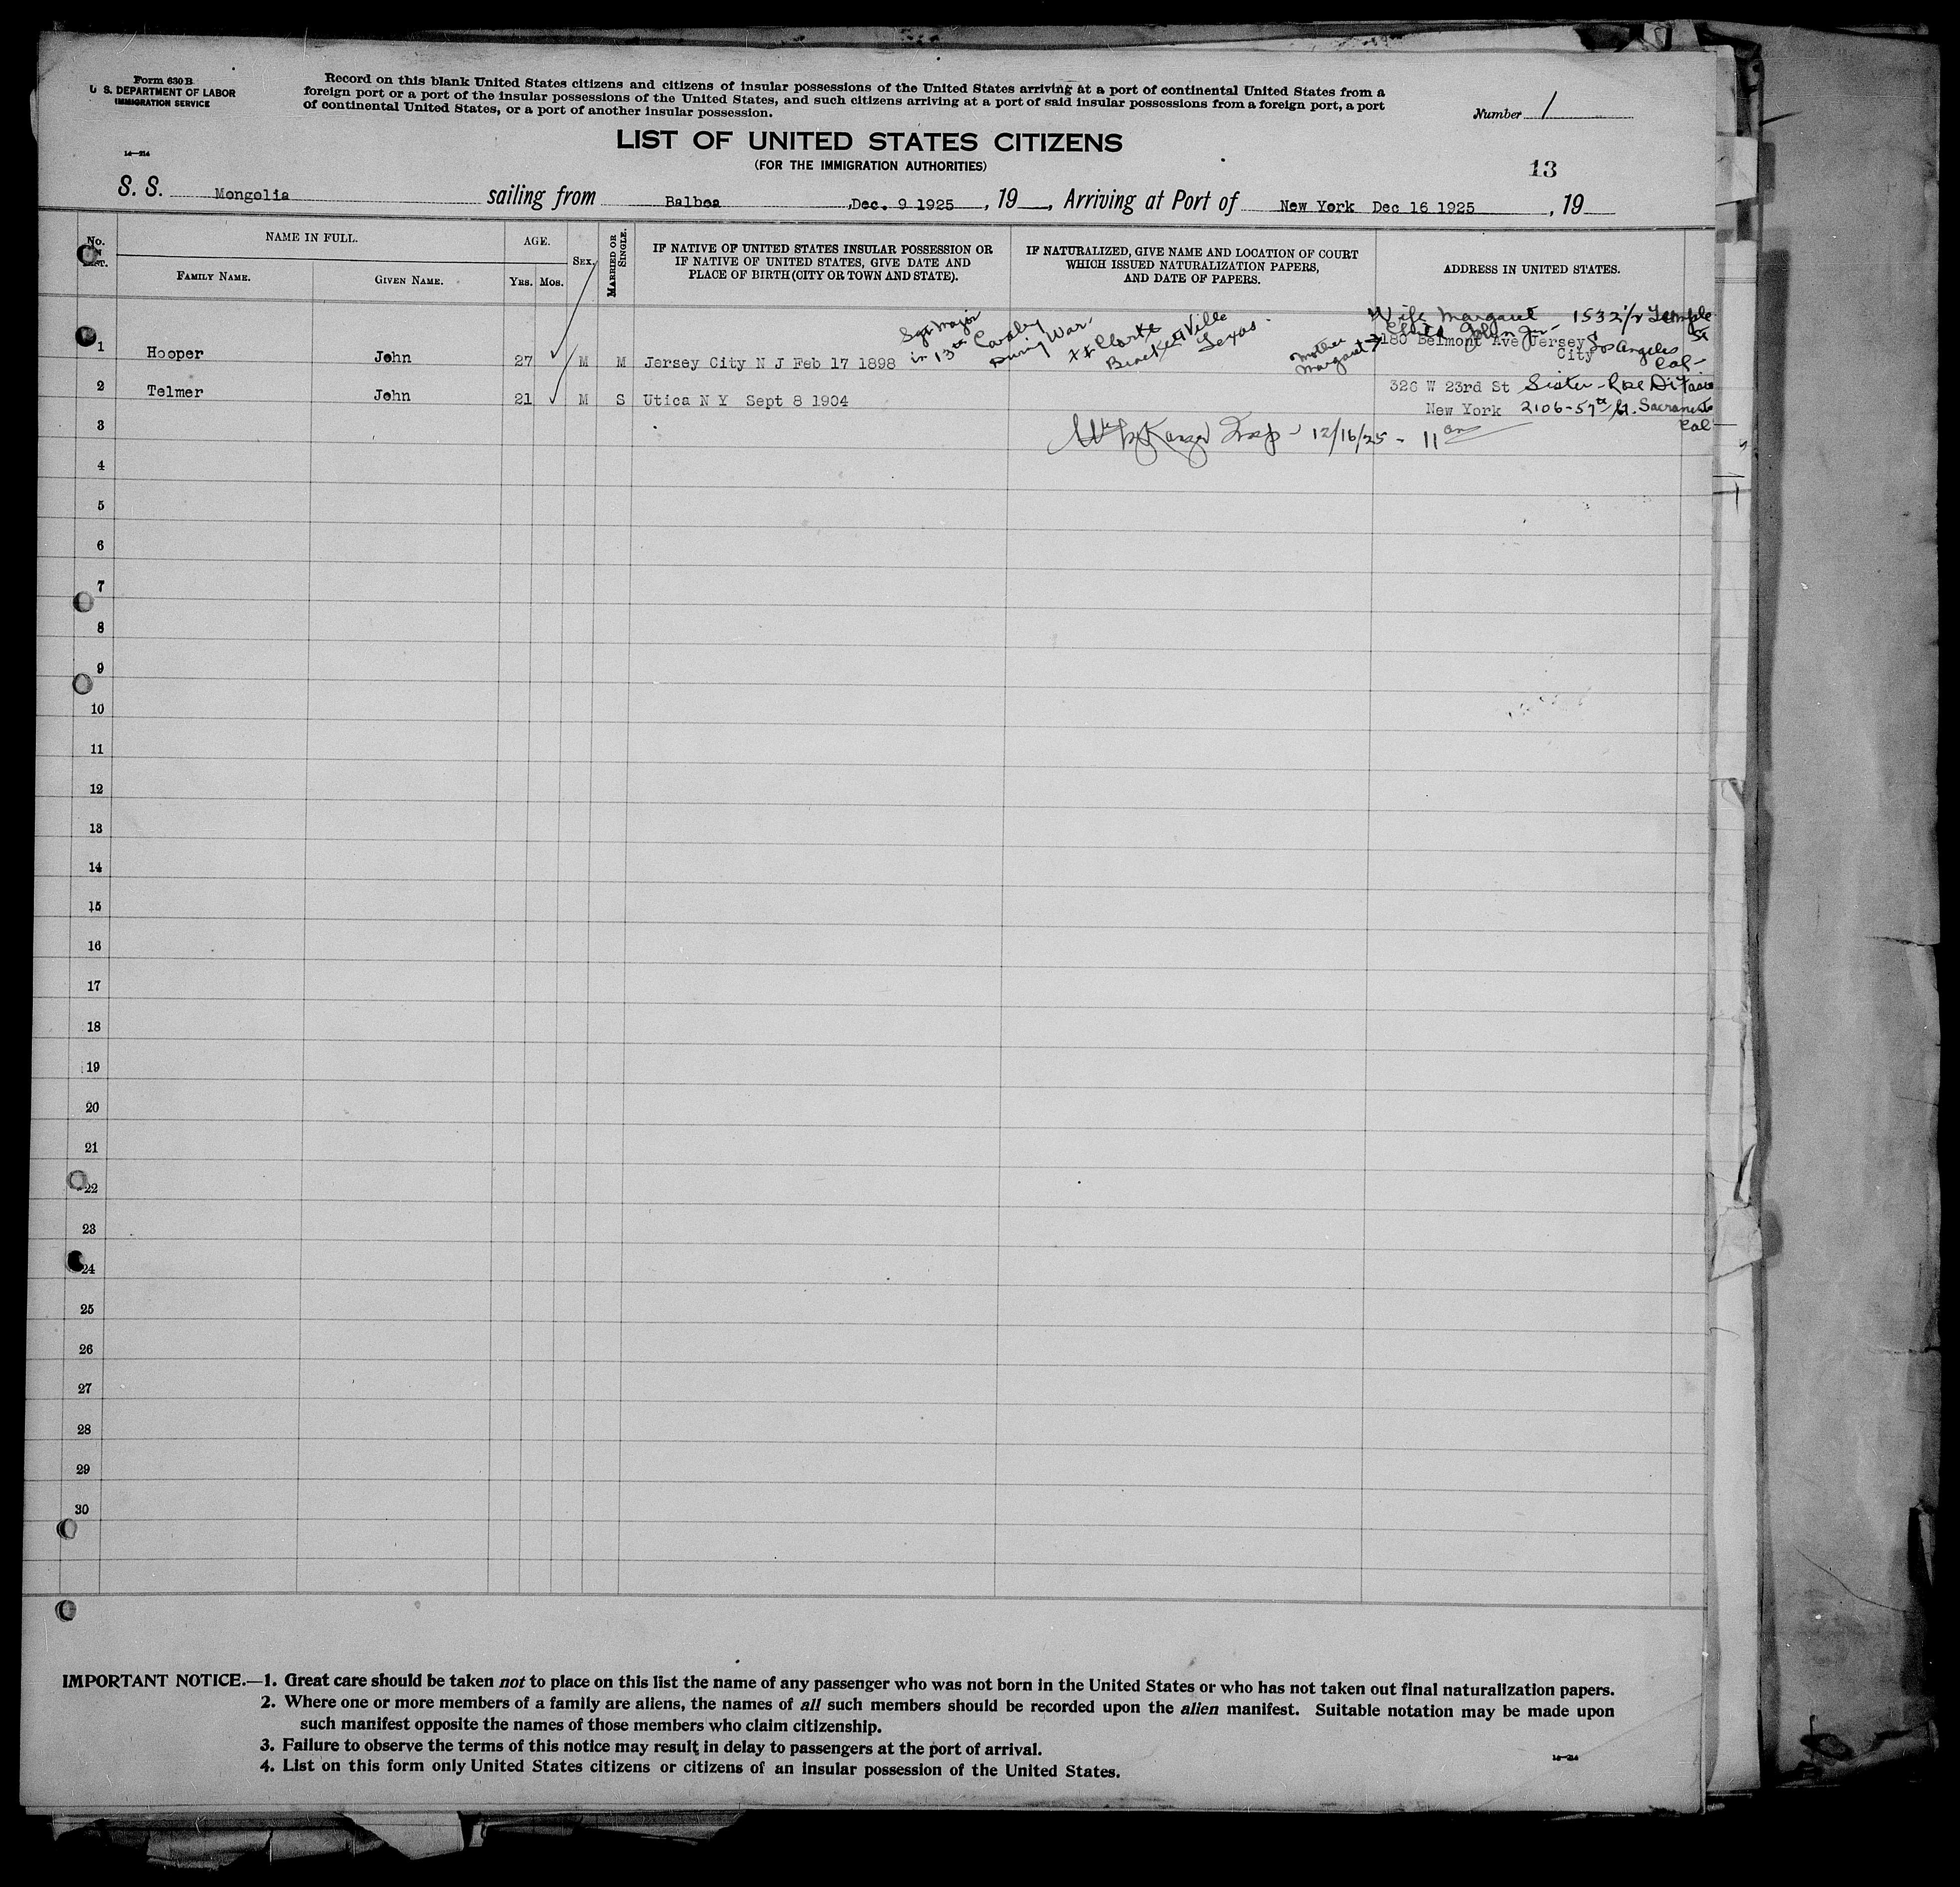 Form 630 B
U. S. DEPARTMENT OF LABOR
IMMIGRATION SERVICE
Record on this blank United States citizens and citizens of insular possessions of the United States arriving at a port of continental United States from a
foreign port or a port of the insular possessions of the United States, and such citizens arriving at a port of said insular possessions from a foreign port, a port
of continental United States, or a port of another insular possession.
Number 1
LIST OF UNITED STATES CITIZENS
(FOR THE IMMIGRATION AUTHORITIES)
14—214
13
S. S. Mongolia sailing from Balboa ,Dec. 9 1925 , 19 , Arriving at Port of New York Dec 16 1925 , 19
No. IN LIST.
NAME IN FULL.
FAMILY NAME.
GIVEN NAME.
AGE.
YRS. MOS.
SEX.
MARRIED OR SINGLE.
IF NATIVE OF UNITED STATES INSULAR POSSESSION OR
IF NATIVE OF UNITED STATES, GIVE DATE AND
PLACE OF BIRTH (CITY OR TOWN AND STATE).
IF NATURALIZED, GIVE NAME AND LOCATION OF COURT
WHICH ISSUED NATURALIZATION PAPERS,
AND DATE OF PAPERS.
ADDRESS IN UNITED STATES.
Wife Margaret 1532 1/2 Temple St
Child John Jr- Los Angeles Cal-
Sgt Major
in 13th Cavalry
During War.
Ft Clarke
Brackettville
Texas.
Mother
Margaret
1 Hooper John 27 M M Jersey City N J Feb 17 1898 180 Belmont Ave Jersey
City
2 Telmer John 21 M S Utica N Y Sept 8 1904 326 W 23rd St Sister - Rose
New York 2106-57th St. Sacramento
Cal
3 Insp - 12/16/25 - 11 am
4
5
6
7
8
9
10
11
12
13
14
15
16
17
18
19
20
21
22
23
24
25
26
27
28
29
30
IMPORTANT NOTICE.—1. Great care should be taken not to place on this list the name of any passenger who was not born in the United States or who has not taken out final naturalization papers.
2. Where one or more members of a family are aliens, the names of all such members should be recorded upon the alien manifest. Suitable notation may be made upon
such manifest opposite the names of those members who claim citizenship.
3. Failure to observe the terms of this notice may result in delay to passengers at the port of arrival.
4. List on this form only United States citizens or citizens of an insular possession of the United States.
14—214